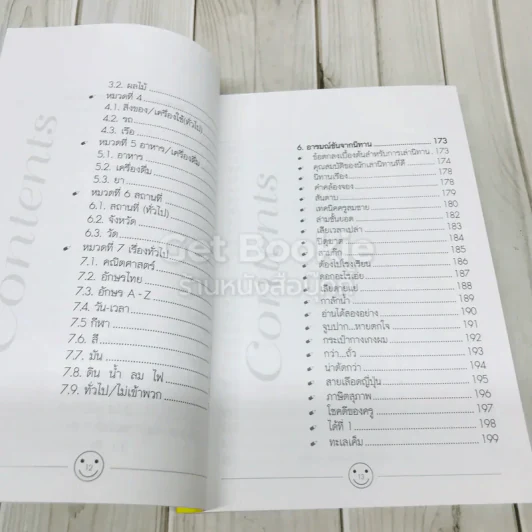 3.2. ผลไม้
หมวดที่ 4
4.1. สิ่งของ/เครื่องใช้(ทั่วไป)
4.2. รถ
4.3. เรือ
หมวดที่ 5 อาหาร/เครื่องดื่ม
5.1. อาหาร
5.2. เครื่องดื่ม
5.3. ยา
หมวดที่ 6 สถานที่
6.1. สถานที่ (ทั่วไป)
6.2. จังหวัด
6.3. วัด
หมวดที่ 7 เรื่องทั่วไป
7.1. คณิตศาสตร์
7.2. อักษรไทย
7.3. อักษร A - Z
7.4. วัน-เวลา
7.5 กีฬา
7.6. สี
7.7. มัน
7.8. ดิน น้ำ ลม ไฟ
7.9. ทั่วไป/ไม่เข้าพวก
12
Contents
6. อารมณ์ขันจากนิทาน 173
ข้อตกลงเบื้องต้นสำหรับการเล่านิทาน 173
คุณสมบัติของนักเล่านิทานที่ดี 174
นิทานเรื่อง 178
คำคล้องจอง 178
สันดาน 179
เทคนิคครูสมชาย 180
ล่ามชั้นยอด 182
เสียเวลาเปล่า 183
184
185
ต้องไปโรงเรียน 186
187
188
กาลักน้ำ 189
อ่านได้ลองอย่าง 190
ธูปปาก...หายตกใจ 191
กระเป๋ากางเกงผม 192
กว่า...ถั่ว 193
น่าตัดกว่า 194
สายเลือดญี่ปุ่น 195
ภาษิตสุภาพ 196
โชคดีของครู 197
ได้ที่ 1 198
ทะเลเค็ม 199
13
Contents
Get Bookie
ร้านหนังสือ